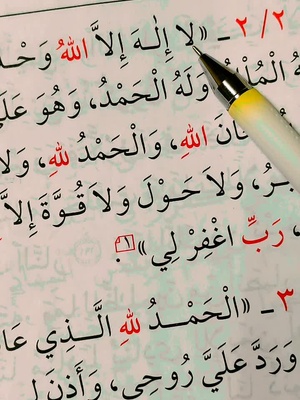 ٢/٢ ـ «لا إِلٰـهَ إِلاَّ اللهُ وَحْدَ
هُ الْمُلْكُ وَلَهُ الْحَمْدُ، وَهُوَ عَلَى
انَ اللهِ، وَالْحَمْدُ للهِ، وَلا
بَرُ، وَلاَ حَوْلَ وَلاَ قُوَّةَ إِلاَّ
، رَبِّ اغْفِرْ لِي» [١].
٣ ـ «الْحَمْـدُ للهِ الَّـذِي عَا
وَرَدَّ عَلَيَّ رُوحِي، وَأَذِنَ لِي